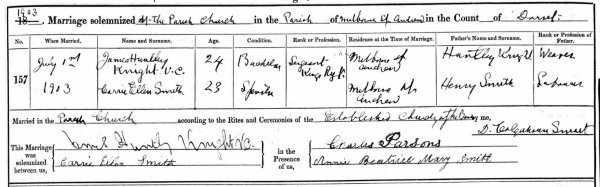 1903
18 . Marriage solemnized At The Parish Church in the Parish of Milborne St Andrew in the Count of Dorset.
No. When Married. Name and Surname. Age. Condition. Rank or Profession. Residence at the Time of Marriage. Father's Name and Surname. Rank or Profession of Father.
157 July 1st 1903
James Huntley Knight V.C. 24 Bachelor Sergeant Kings Rgt Milborne St Andrew Huntley Knight Weaver
Carrie Ellen Smith 23 Spinster Milborne St Andrew Henry Smith Labourer
Married in the Parish Church according to the Rites and Ceremonies of the Established Church by me,
This Marriage was solemnized between us,
James Huntley Knight V.C.
Carrie Ellen Smith
In the Presence of us,
Charles Parsons
Annie Beatrice Mary Smith